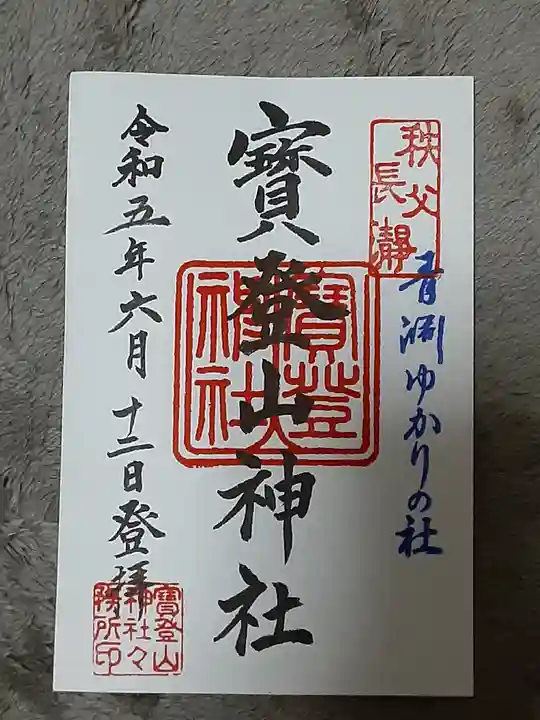 秩父
長瀞
青渊ゆかりの社
寳登山神社
寳登
神社
令和五年六月十二日登拝
寳登山
神社々
務所印